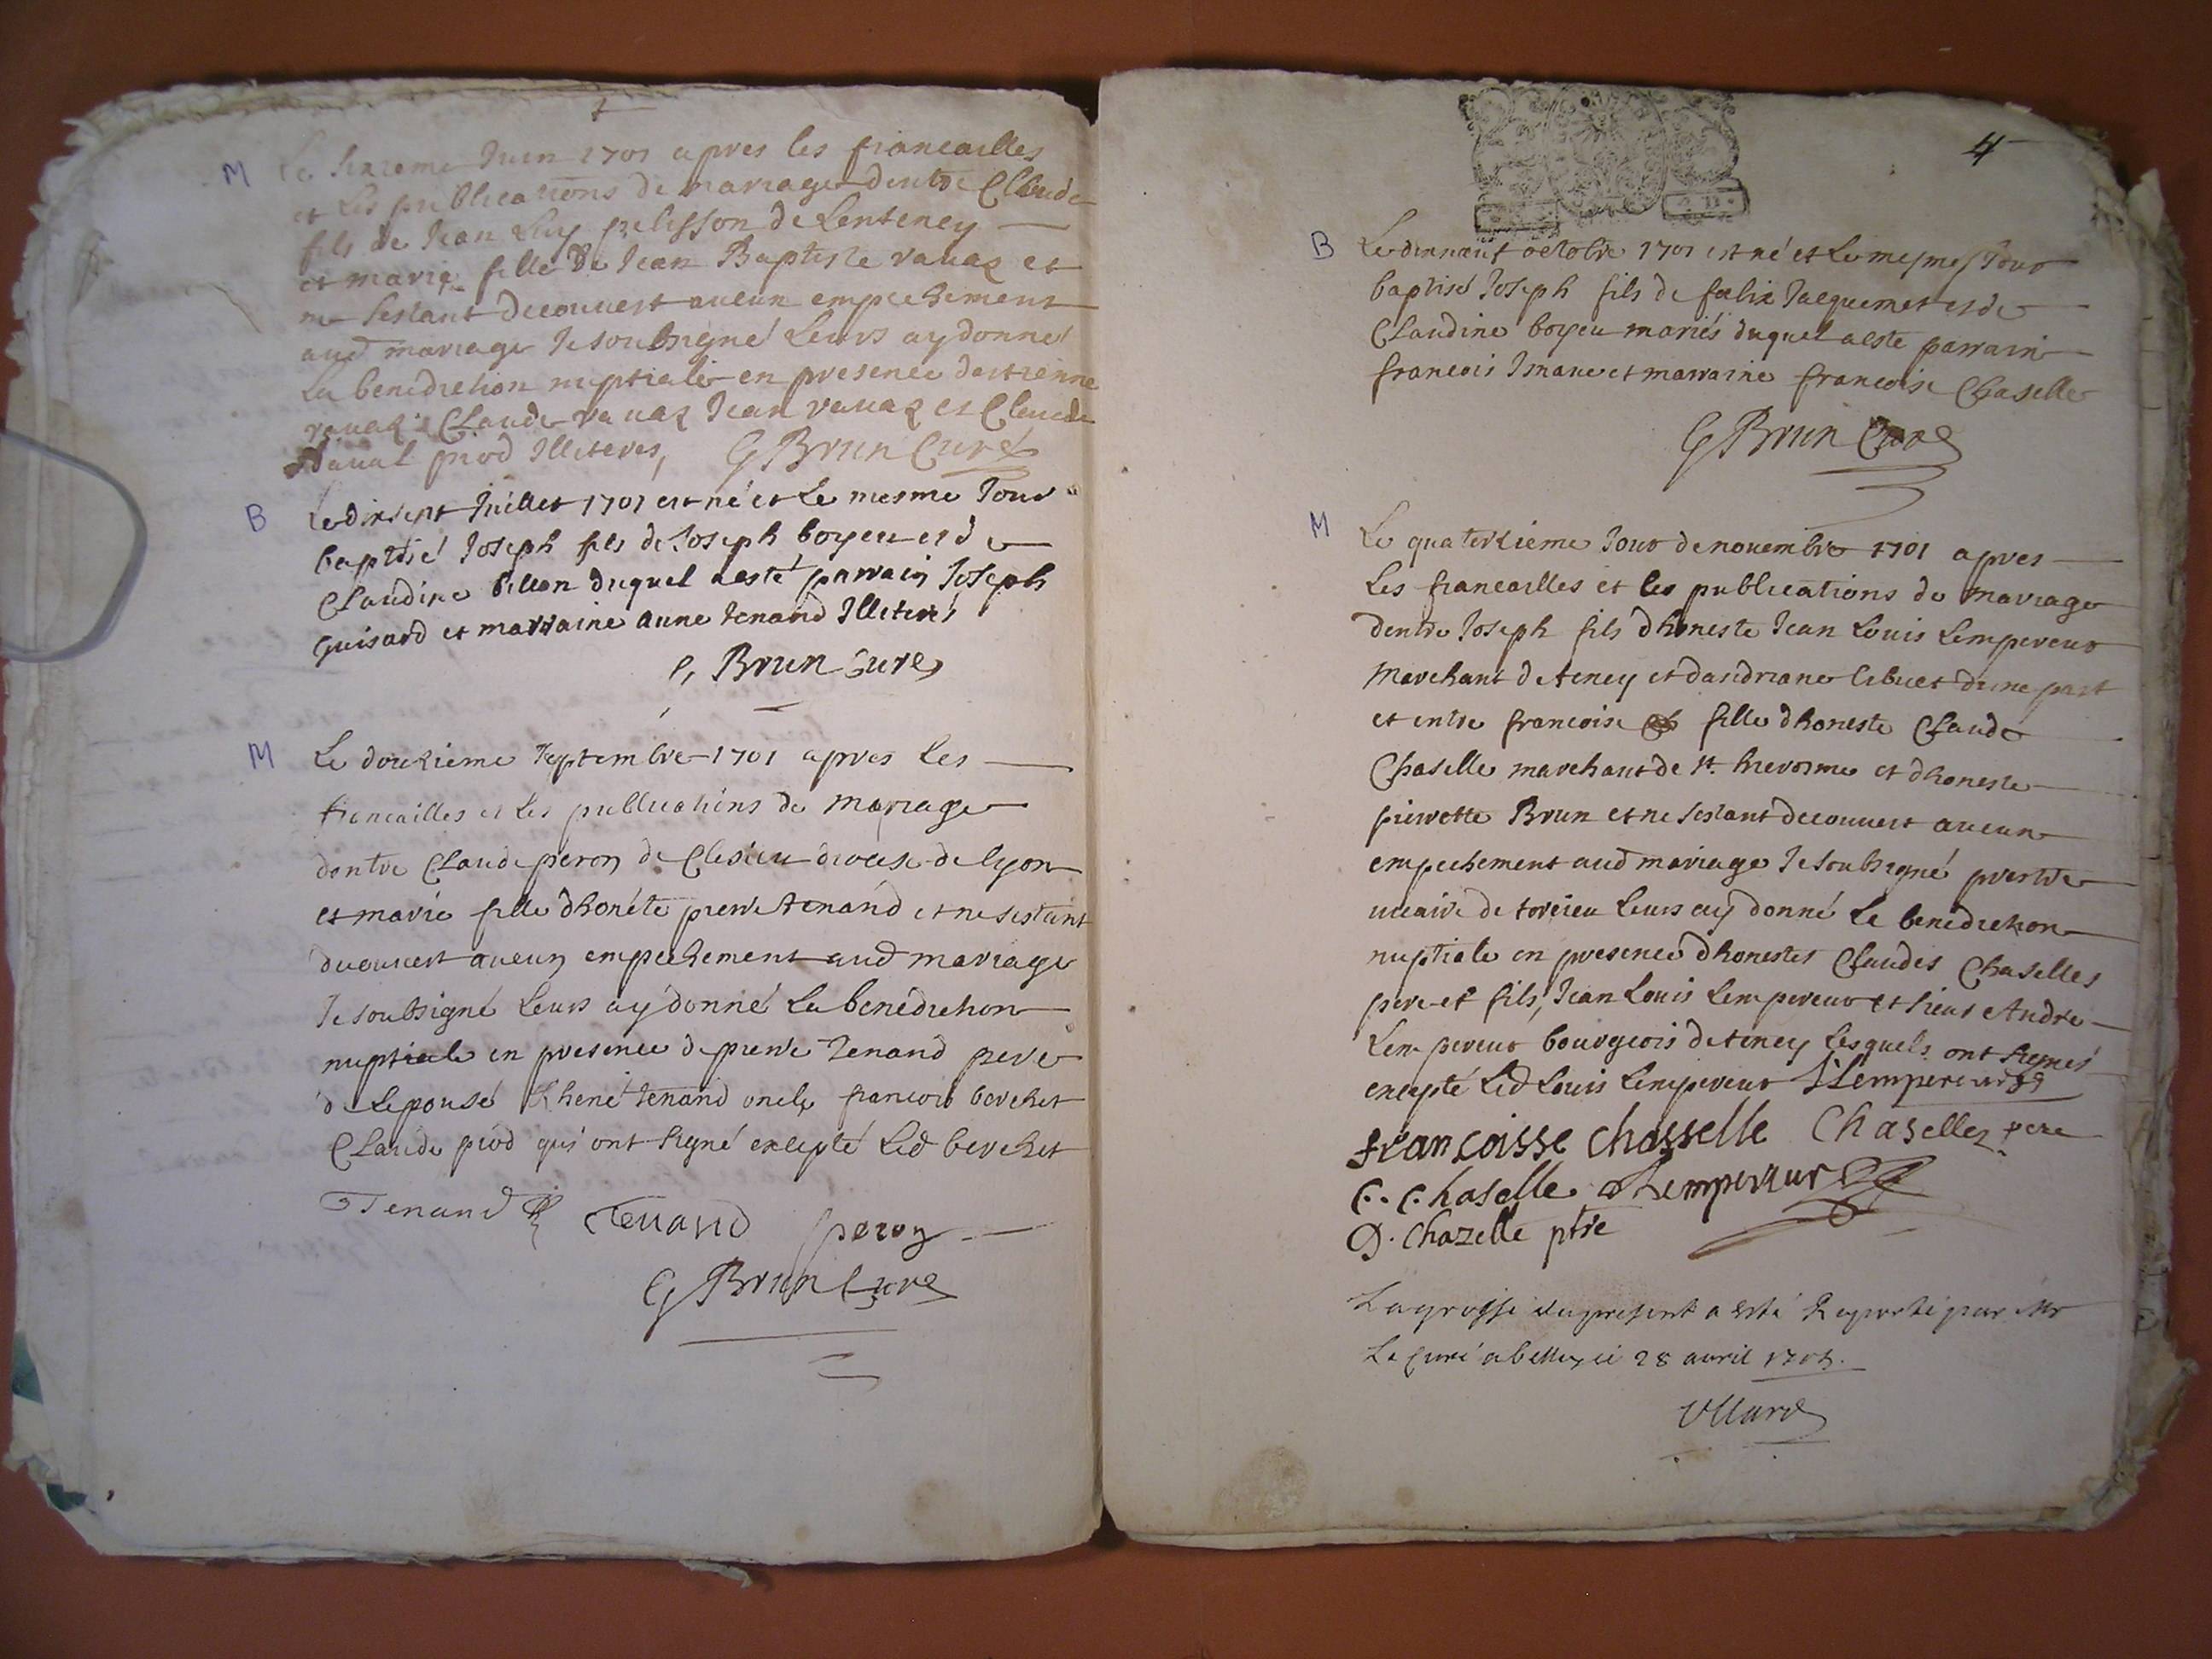 M Le sixieme Juin 1701 apres les fiancailles
et les publications de mariage dentre Claude
fils de Jean Luy pelisson de Lenteney
et marie fille de Jean Baptiste vauaz et
ne sestant decouuert aucun empechement
aud mariage Je soubsigné Leurs ay donné
La benediction nuptiale en presence destienne
vauaz Claude vauaz Jean vauaz et Claude
piod Illiteres, G Brun Curé
B Le dixsept Juillet 1701 est né et Le mesme Jour
baptisé Joseph fils de Joseph boyeu et de
Claudine billon duquel a esté parrain Joseph
guisard et marraine anne tenand Illiterés
G Brun Curé
M Le douzieme septembre 1701 apres les
fiancailles et les publications de mariage
dentre Claude peron de Clesieu diocese de lyon
et marie fille dhonéte pierre tenand et ne sestant
decouuert aucun empechement aud mariage
Je soubsigné Leurs ay donné La benediction
nuptiale en presence de pierre tenand pere
de Lepousé Rhené tenand oncle francois berchet
Claude piod qui ont signé excepté Led berchet
Tenand R Tenand peron
G Brun Curé
4
B Le dixneuf octobre 1701 est né et Le mesmes Jour
baptisé Joseph fils de felix Jacquemet et de
Claudine boyeu mariés duquel a este parrain
francois et marraine francoise Chaselle
G Brun Curé
M Le quaterzieme Jour de nouembre 1701 apres
Les fiancailles et les publications de mariage
dentre Joseph fils dhoneste Jean Louis Lempereur
Marchant de teney et dandriane dune part
et entre francoise fille dhoneste Claude
Chaselle marchant de st. hierosme et dhoneste
pierrette Brun et ne sestant decouuert aucun
empechement aud mariage Je soubsigné prestre
uicaire de torcieu Leurs ay donné Le benediction
nuptiale en presence dhonestes Claudes Chaselles
pere et fils, Jean Louis Lempereur et sieur Andre
Lempereur bourgeois de teney Lesquels ont signés
excepté Led Louis Lempereur Lempereur
francoisse chasselle Chaselles pere
C. Chaselle Lempereur
D. Chazelle ptre
La grosse du present a esté Raporté par Mr
Le Curé a belley ce 28 auril